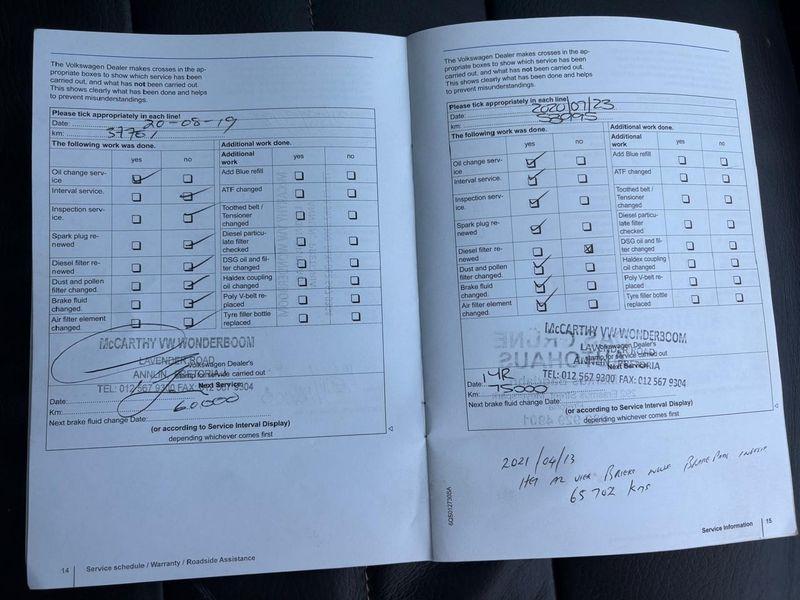 The Volkswagen Dealer makes crosses in the ap-
propriate boxes to show which service has been
carried out, and what has not been carried out.
This shows clearly what has been done and helps
to prevent misunderstandings.
Please tick appropriately in each line!
Date: 20-08-19
km: 37761
The following work was done. Additional work done.
yes no Additional work yes no
Oil change serv-
ice Add Blue refill
Interval service. ATF changed
Inspection serv-
ice. Toothed belt /
Tensioner
changed
Spark plug re-
newed Diesel particu-
late filter
checked
Diesel filter re-
newed DSG oil and fil-
ter changed
Dust and pollen
filter changed. Haldex coupling
oil changed
Brake fluid
changed. Poly V-belt re-
placed
Air filter element
changed. Tyre filler bottle
replaced
McCARTHY VW WONDERBOOM
LAVENDER ROAD
Volkswagen Dealer's
stamp for service carried out
TEL: 012 567 9300 FAX: 012 567 9304
Next Service:
Date:
Km: 60000
Next brake fluid change Date:
(or according to Service Interval Display)
depending whichever comes first
14 Service schedule / Warranty / Roadside Assistance
The Volkswagen Dealer makes crosses in the ap-
propriate boxes to show which service has been
carried out, and what has not been carried out.
This shows clearly what has been done and helps
to prevent misunderstandings.
Please tick appropriately in each line!
Date: 2020/07/23
km: 53995
The following work was done. Additional work done.
yes no Additional
work yes no
Oil change serv-
ice Add Blue refill
Interval service. ATF changed
Inspection serv-
ice. Toothed belt /
Tensioner
changed
Spark plug re-
newed Diesel particu-
late filter
checked
Diesel filter re-
newed DSG oil and fil-
ter changed
Dust and pollen
filter changed. Haldex coupling
oil changed
Brake fluid
changed. Poly V-belt re-
placed
Air filter element
changed. Tyre filler bottle
replaced
McCARTHY VW WONDERBOOM
LAVENDER ROAD
Volkswagen Dealer's
stamp for service carried out
TEL: 012 567 9300 FAX: 012 567 9304
Next Service:
Date: 1YR
Km: 75000
Next brake fluid change Date:
(or according to Service Interval Display)
depending whichever comes first
2021/04/13
Het al vier nuwe Brake
65702 kms
6QS012730SA
Service information 15